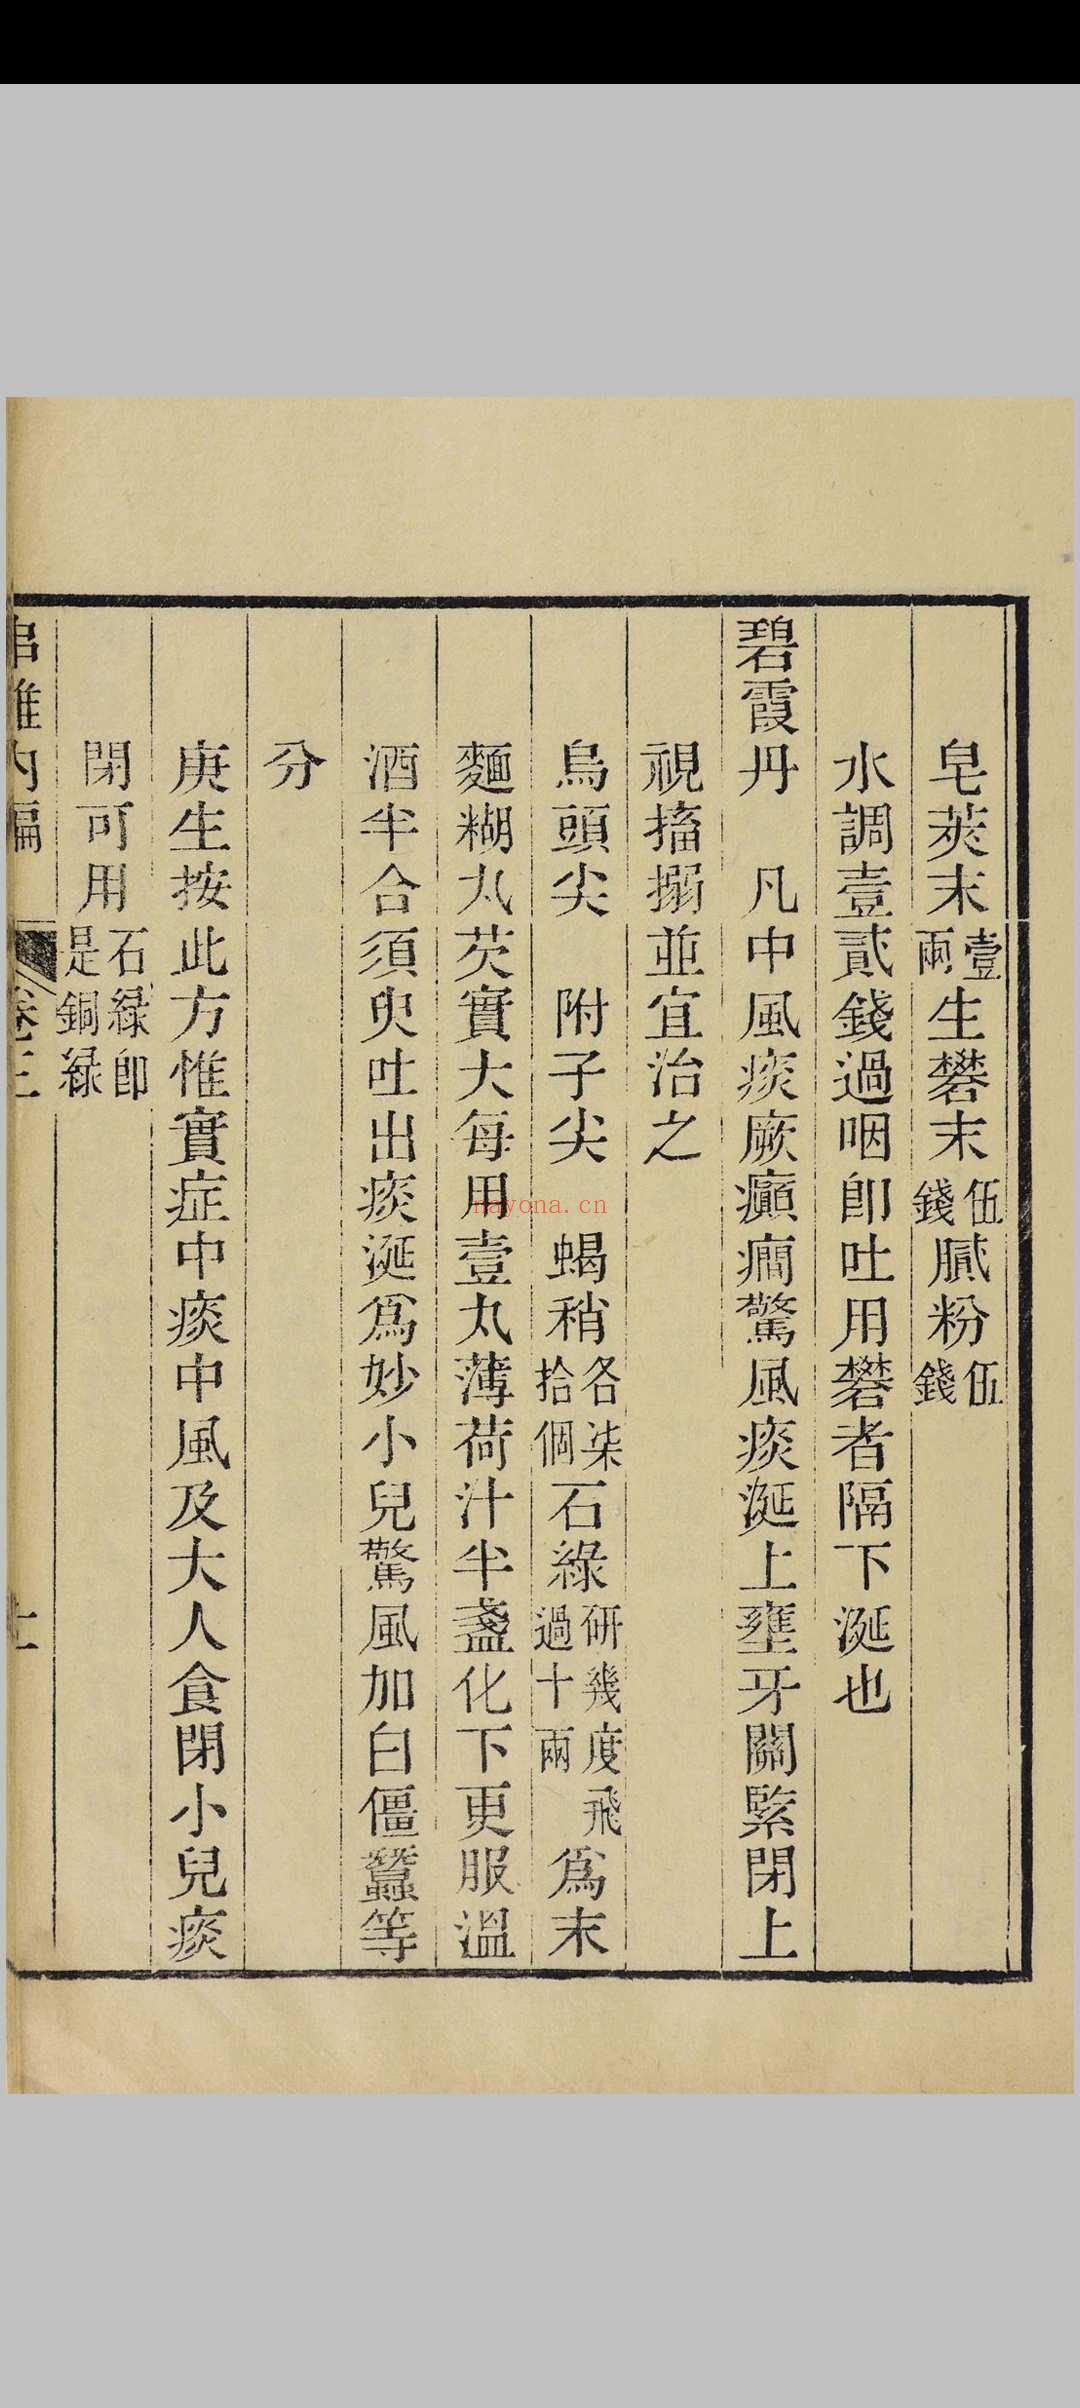 皂莢末壹兩生礬末伍錢膩粉伍錢
水調壹貳錢過咽卽吐用礬者隔下涎也
碧霞丹　凡中風痰厥癲癎驚風痰涎上壅牙關緊閉上
視搐搦並宜治之
烏頭尖　附子尖　蝎稍各柒拾個石綠研幾度飛過十兩爲末
麵糊丸芡實大每用壹丸薄荷汁半盞化下更服溫
酒半合須臾吐出痰涎爲妙小兒驚風加白僵蠶等
分
庚生按此方惟實症中痰中風及大人食閉小兒痰
閉可用石綠卽是銅綠
串雅內編　卷三
nayona.cn